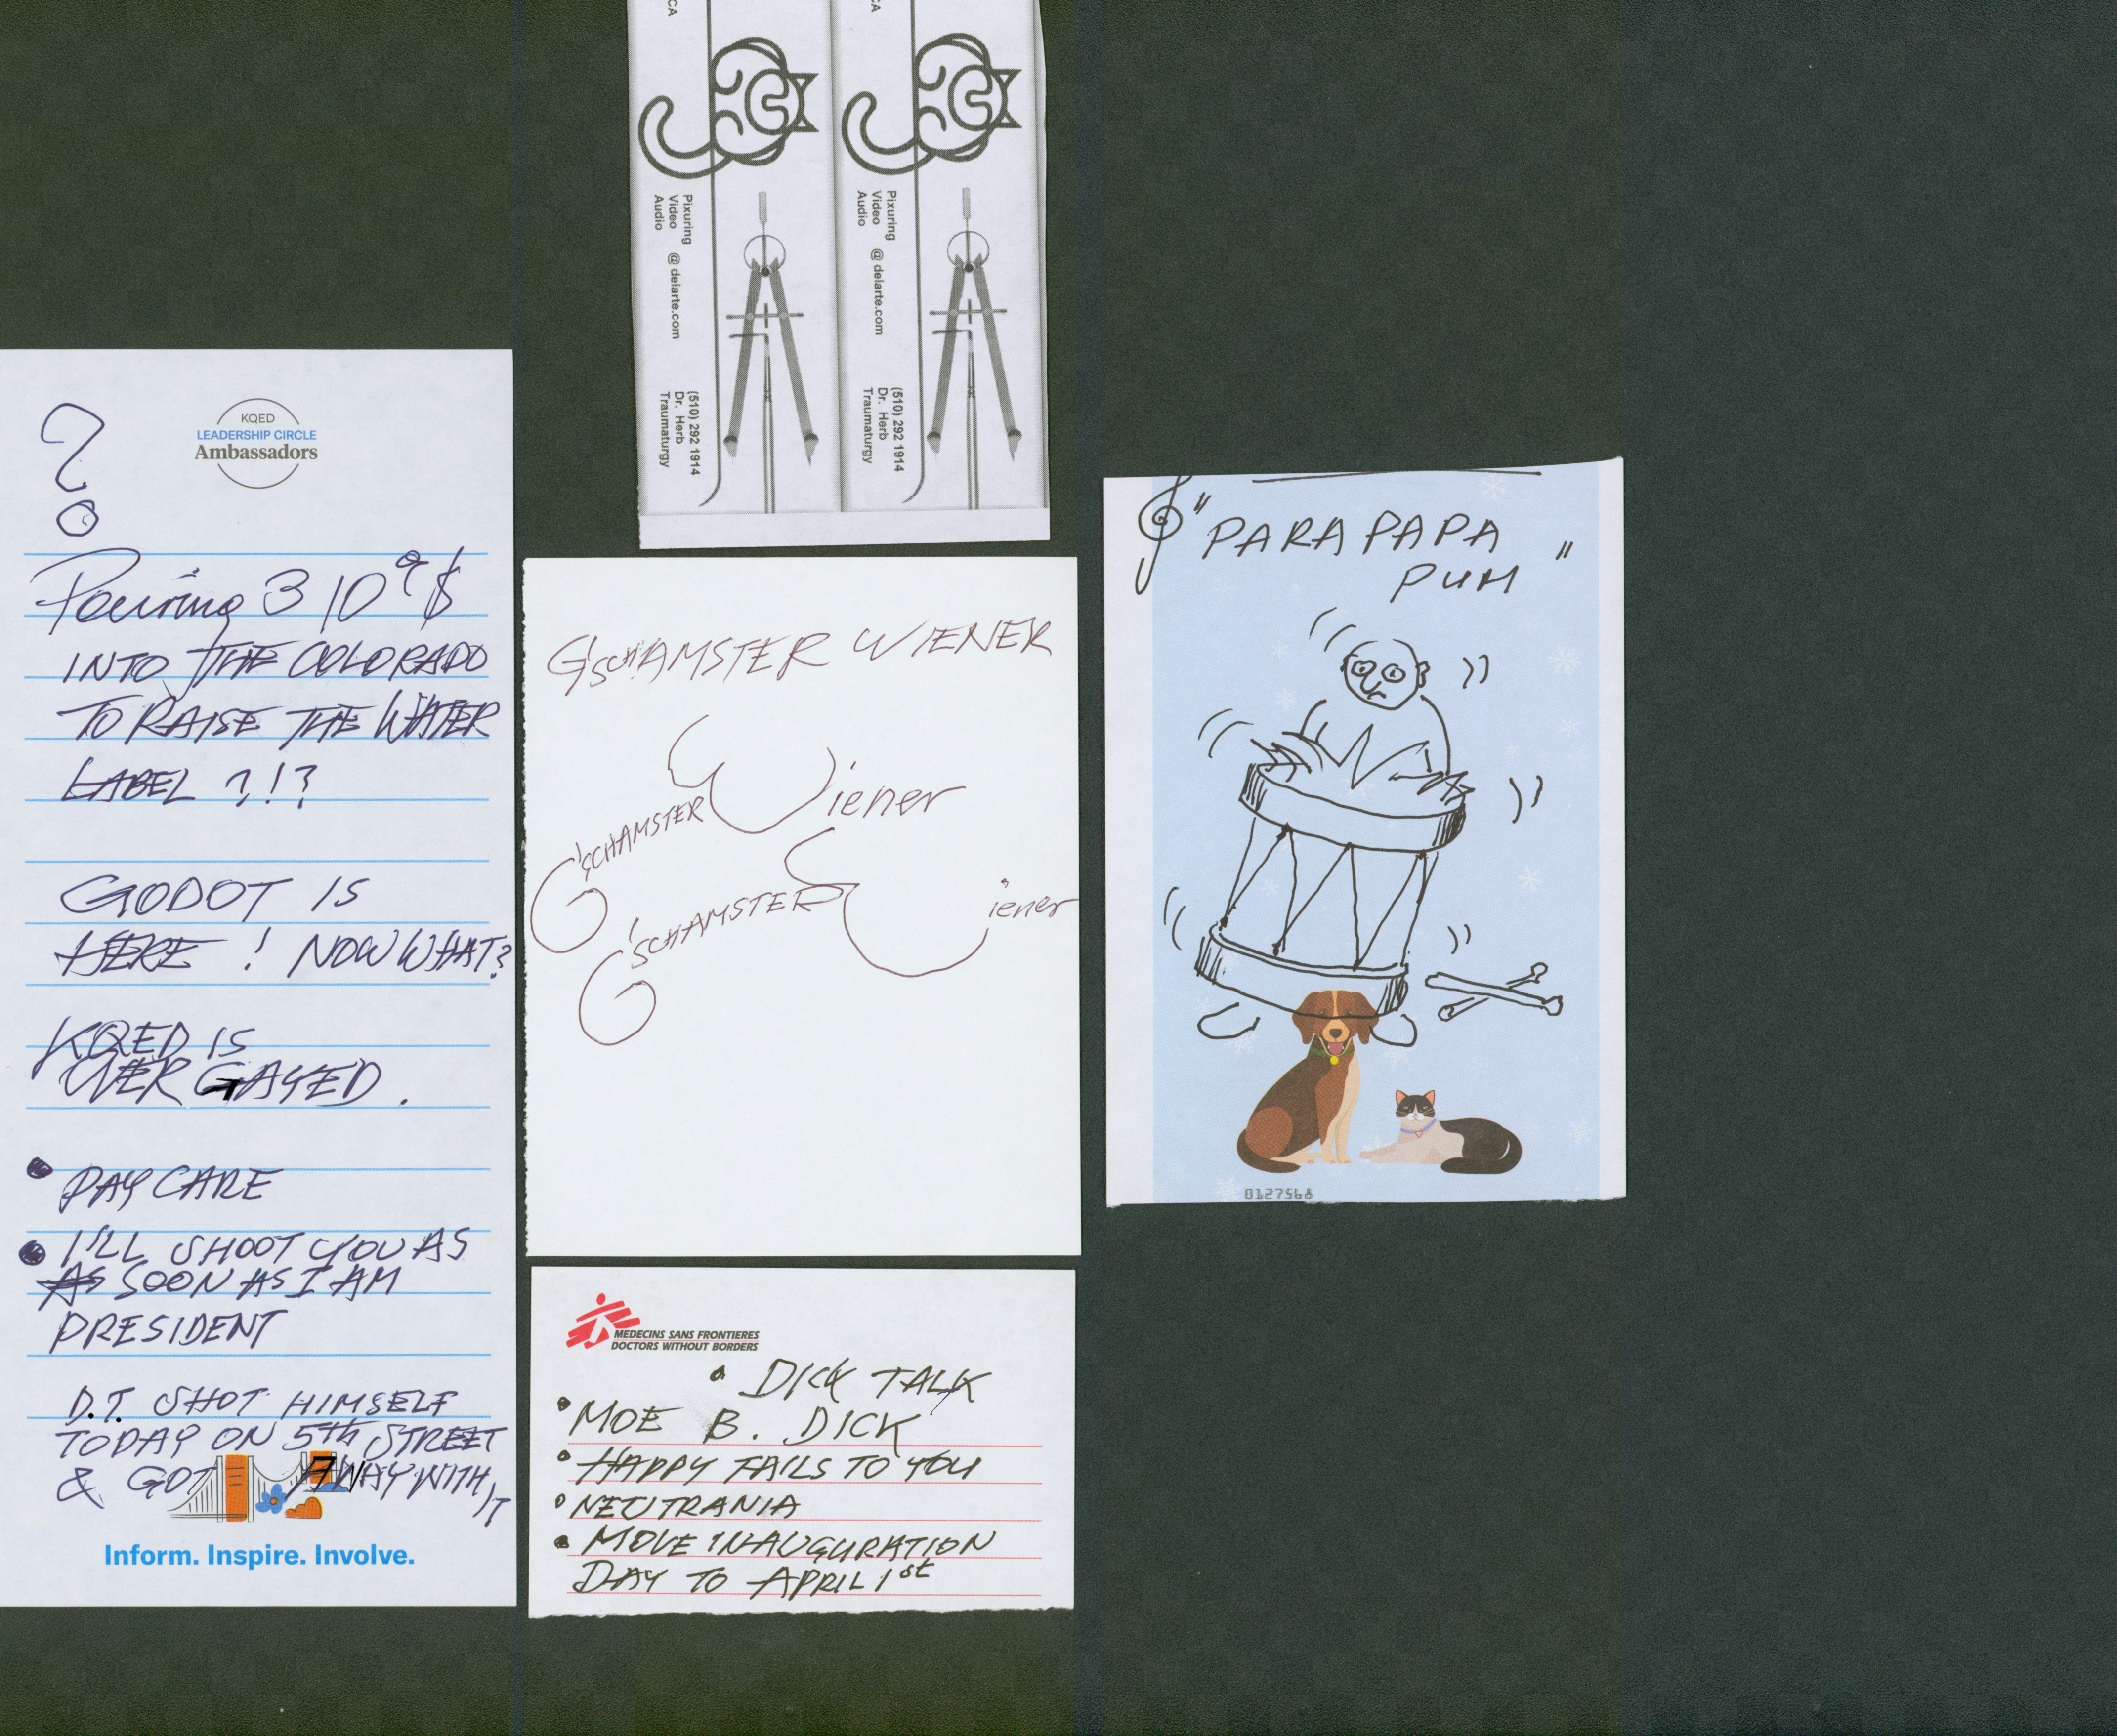 KQED
LEADERSHIP CIRCLE
Ambassadors
?
Pouring 3 10⁹ $
INTO THE COLORADO
TO RAISE THE WATER
LABEL ?!?
GODOT IS
HERE ! NOW WHAT?
KQED IS
OVER GAYED.
• PAY CARE
• I'LL SHOOT YOU AS
AS SOON AS I AM
PRESIDENT
D.T. SHOT HIMSELF
TODAY ON 5th STREET
& GOT AWAY WITH IT
Inform. Inspire. Involve.
CA
Pixuring
Video @ delarte.com
Audio
(510) 292 1914
Dr. Herb
Traumaturgy
CA
Pixuring
Video @ delarte.com
Audio
(510) 292 1914
Dr. Herb
Traumaturgy
G'SCHAMSTER WIENER
G'SCHAMSTER Wiener
G'SCHAMSTER Wiener
MEDECINS SANS FRONTIERES
DOCTORS WITHOUT BORDERS
• DICK TALK
• MOE B. DICK
• HAPPY FAILS TO YOU
• NEUTRANIA
• MOVE INAUGURATION
DAY TO APRIL 1st
"PARAPAPA
PUM"
0127568